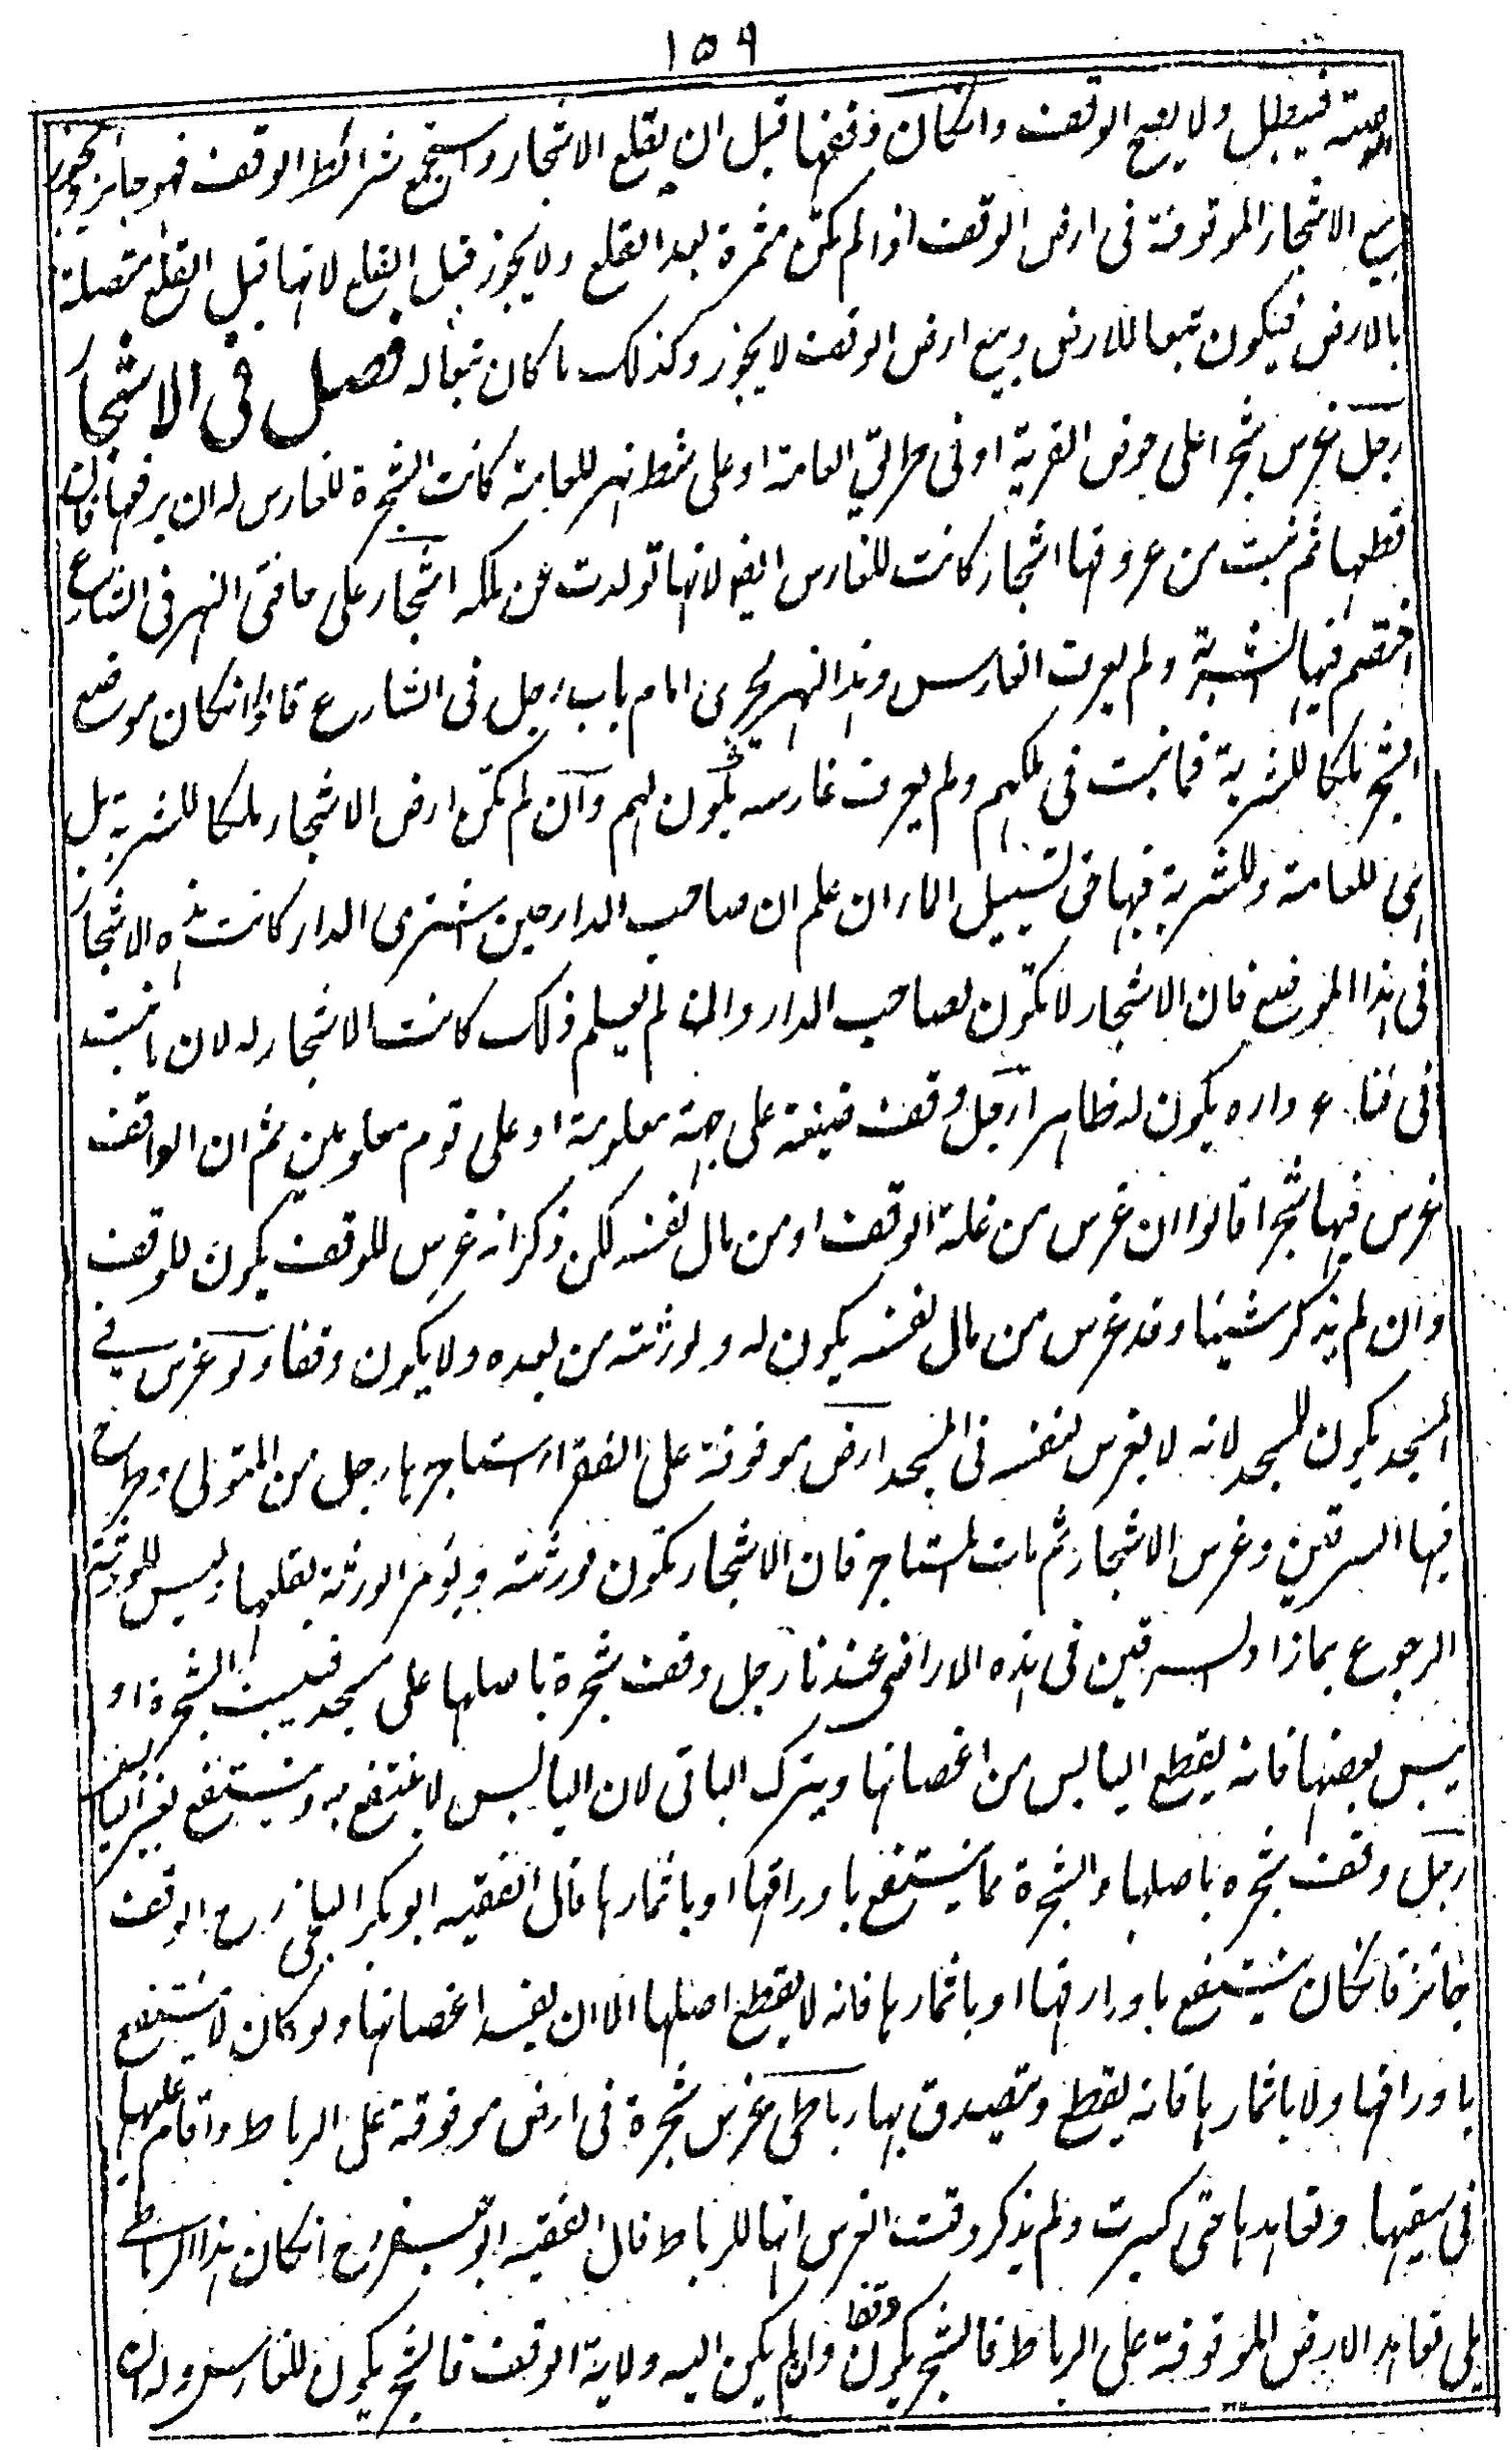 ١٥٩
وصية فيبطل ولا يصح الوقف وانكان وقفها قبل ان يقلع الاشجار واستجمع شرائط الوقف فهو جائز ويجوز
بيع الاشجار الموقوفة فى ارض الوقف اذا لم تكن مثمرة بعد القلع ولا يجوز قبل القلع لانها قبل القلع متصلة
بالارض فيكون تبعا للارض وبيع ارض الوقف لا يجوز وكذلك ما كان تبعا له فصل فى الاشجار
رجل غرس شجرا على حوض القرية او فى طريق العامة او على شط نهر للعامة كانت الشجرة للغارس له ان يرفعها فان
قطعها ثم نبت من عروقها اشجار كانت للغارس ايضا لانها تولدت عن ملكه اشجار على حافتى النهر فى الشارع
اختصم فيها الشربة ولم يعرف الغارس وهذا النهر يجرى امام باب رجل فى الشارع قالوا انكان موضع
الشجر ملكا للشربة فما نبت فى ملكهم ولم يعرف غارسه يكون لهم وان لم تكن ارض الاشجار ملكا للشربة بل
هى للعامة وللشربة فيها حق تسييل الماء ان علم ان صاحب الدار حين اشترى الدار كانت هذه الاشجار
فى هذا الموضع فان الاشجار لا تكون لصاحب الدار وان لم يعلم ذلك كانت الاشجار له لان ما نبت
فى فناء داره يكون له ظاهرا رجل وقف ضيعة على جهة معلومة او على قوم معلومين ثم ان الواقف
غرس فيها شجرا قالوا ان غرس من غلة الوقف او من مال نفسه لكن ذكر انه غرس للوقف يكون للوقف
وان لم يذكر شيئا وقد غرس من مال نفسه يكون له ولورثته من بعده ولا يكون وقفا ولو غرس في
المسجد يكون للمسجد لانه لا يغرس لنفسه فى المسجد ارض موقوفة على الفقراء استاجرها رجل من المتولى وطرح
فيها السرقين وغرس الاشجار ثم مات المستاجر فان الاشجار تكون لورثته ويؤمر الورثة بقلعها وليس للورثة
الرجوع بما زاد السرقين فى هذه الاراضى عندنا رجل وقف شجرة باصلها على مسجد فيبست الشجرة او
يبس بعضها فانه يقطع اليابس من اغصانها ويترك الباقى لان اليابس لا ينتفع به وينتفع بغير اليابس
رجل وقف شجره باصلها والشجرة مما ينتفع باوراقها او باثمارها قال الفقيه ابو بكر البلخى رح الوقف
جائز فانكان ينتفع باوراقها او باثمارها فانه لا يقطع اصلها الا ان يفسد اغصانها ولو كان لا ينتفع
باوراقها ولا باثمارها فانه يقطع ويتصدق بها رباطى غرس شجرة فى ارض موقوفة على الرباط وقام عليها
فى سقيها وتعاهدها حتى كبرت ولم يذكر وقت الغرس انها للرباط قال الفقيه ابو جعفر رح انكان هذا الرباطى
يلى تعاهد الارض الموقوفة على الرباط فالشجر يكون وقفا وان لم يكن اليه ولاية الوقف فالشجر يكون للغارس وله ان